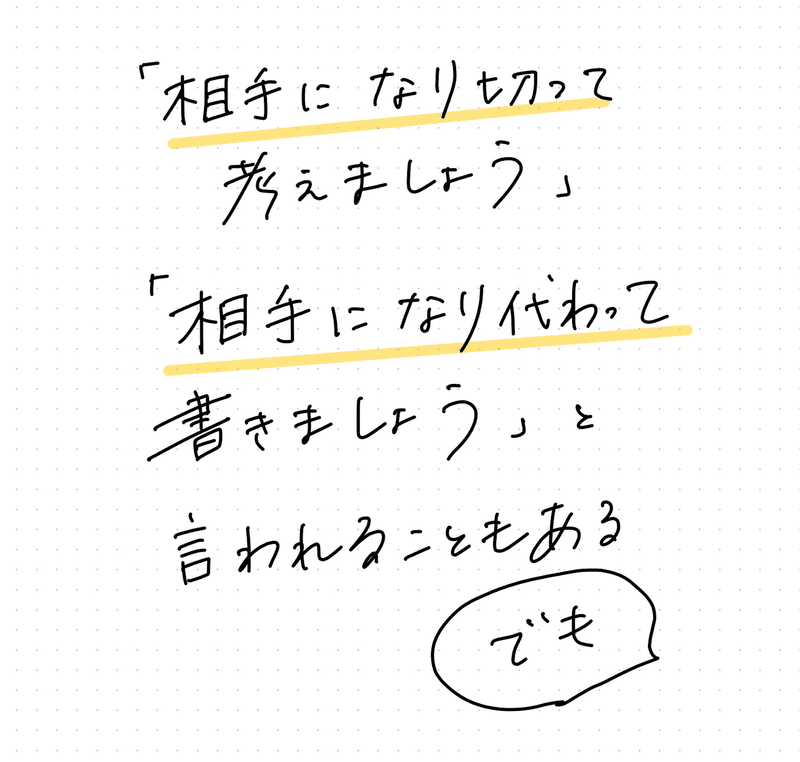 「相手になり切って
考えましょう」
「相手になり代わって
書きましょう」と
言われることもある
でも